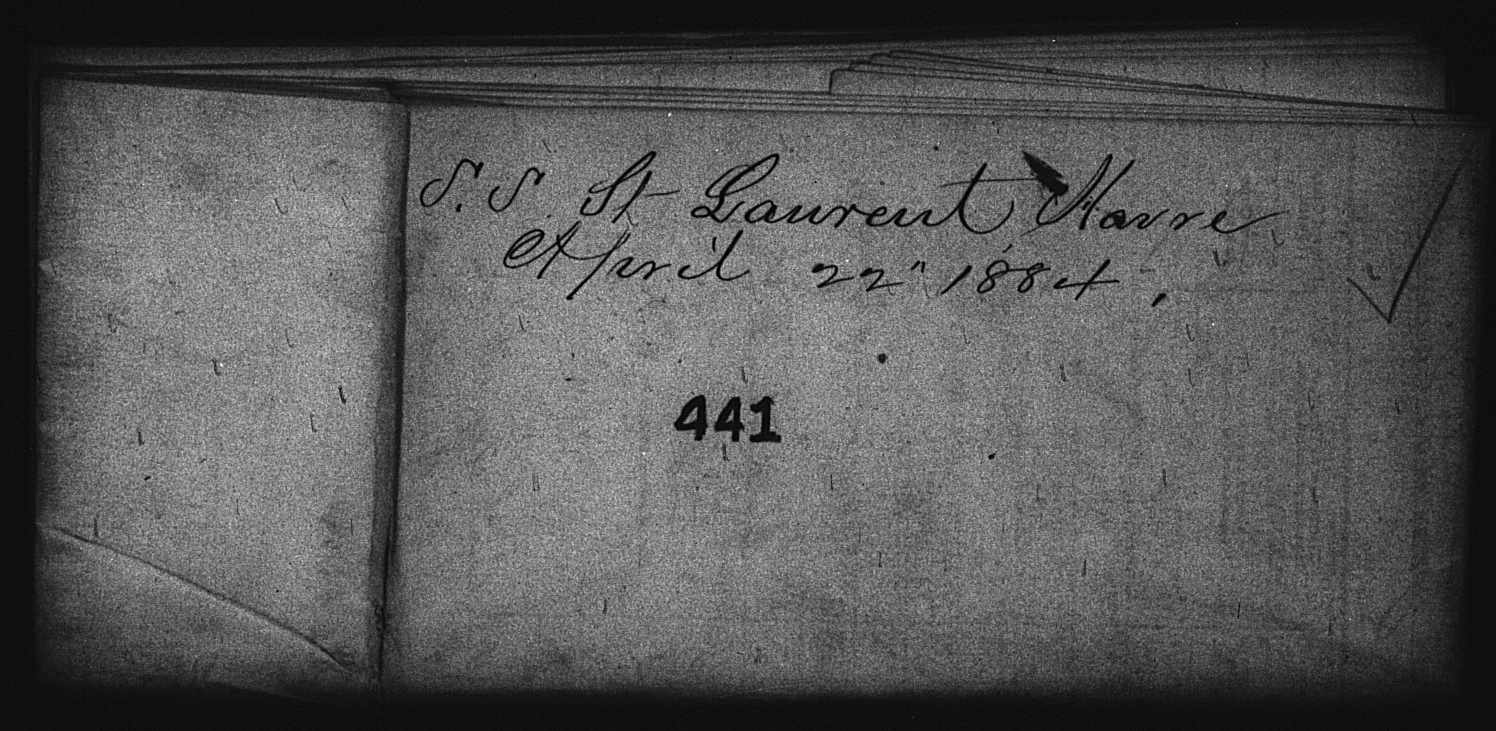 S. S. St Laurent, Havre
April 22" 1884,
441